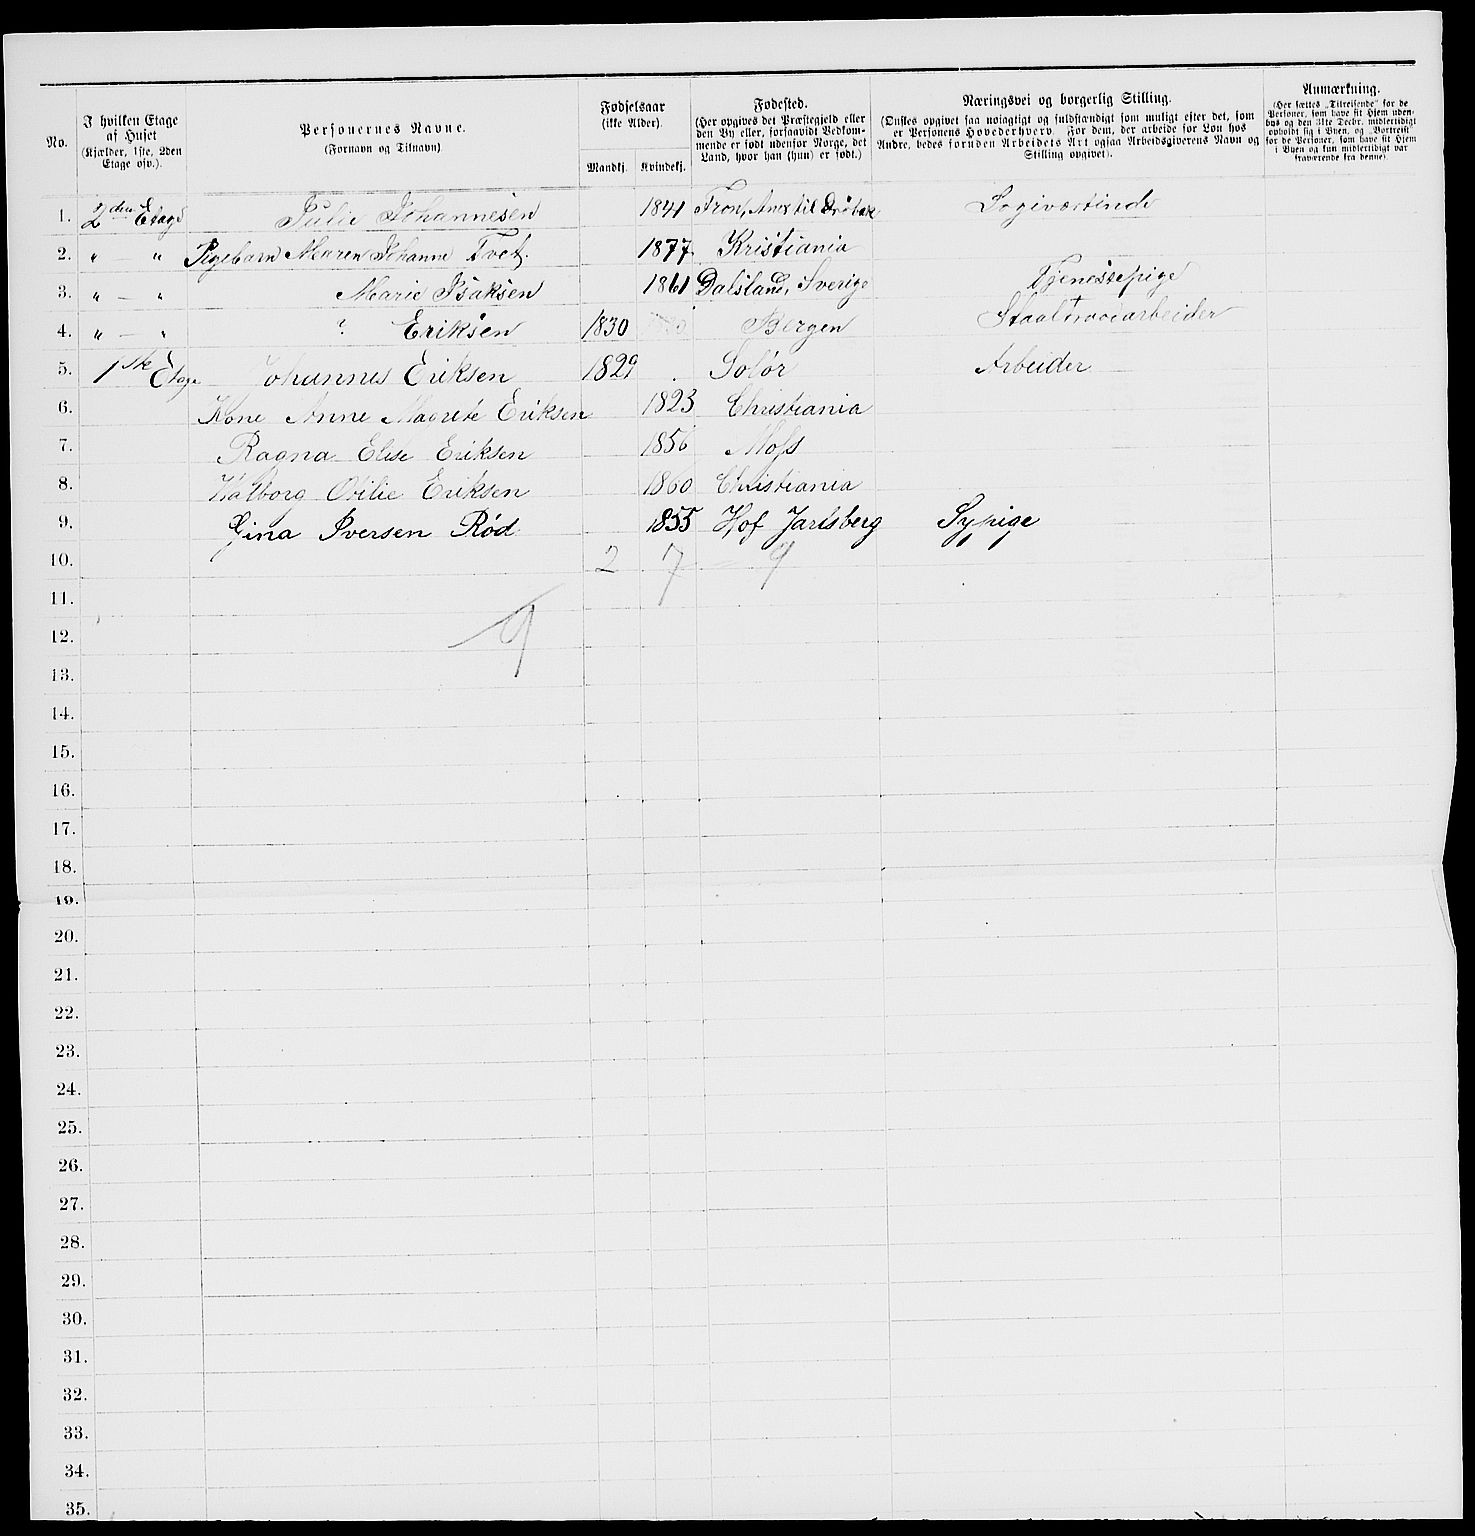 No.
I hvilken Etage af Huset (Kjælder, 1ste, 2den Etage osv.).
Personernes Navne. (Fornavn og Tilnavn)
Fødselsaar (ikke Alder).
Mandkj. Kvindekj.
Fødested. (Her opgives det Præstegjeld eller den By eller, forsaavidt Vedkommende er født udenfor Norge, det Land, hvor han (hun) er født.)
Næringsvei og borgerlig Stilling. (Ønskes opgivet saa nøiagtigt og fuldstændigt som muligt efter det, som er Personens Hovederhverv. For dem, der arbeide for Løn hos Andre, bedes foruden Arbeidets Art ogsaa Arbeidsgiverens Navn og Stilling opgivet).
Anmærkning. (Her sættes „Tilreisende“ for de Personer, som have sit Hjem udenbys og den 31te Decbr. midlertidigt opholdt sig i Byen, og „Bortreist“ for de Personer, som have sit Hjem i Byen og kun midlertidigt var fraværende fra denne).
1. 2den Etage Julie Johannesen 1841 Fron, Anex til Drøbak Logivertinde
2. " " Pigebarn Maren Johanne Tvet. 1877. Kristiania
3. " — " Marie Isaksen 1861 Dalsland, Sverige Tjenestepige
4. " — " ? Eriksen 1830 Bergen Staaltraaarbeider
5. 1ste Etage Johannes Eriksen 1829 Solør Arbeider
6. Kone Anne Magrete Eriksen 1823 Christiania
7. Ragna Elise Eriksen 1856 Moss
8. Walborg Otilie Eriksen 1860 Christiania
9. Gina Iversen Rød 1855 Hof Jarlsberg Sypige
10. 2 7 9
11.
12. 9
13.
14.
15.
16.
17.
18.
19.
20.
21.
22.
23.
24.
25.
26.
27.
28.
29.
30.
31.
32.
33.
34.
35.